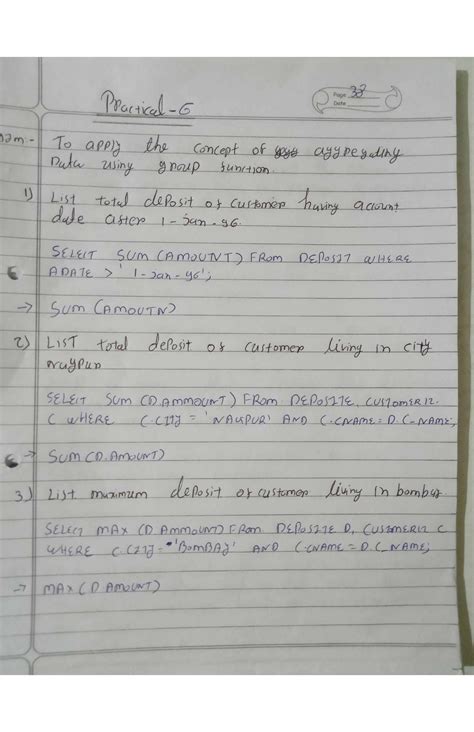 Page 38
Date
Practical-6
Aim:-
To apply the concept of aggregating
Data using group function.
1) List total deposit of customer having account
date after 1-Jan-96.
SELECT SUM (AMOUNT) FROM DEPOSIT WHERE
ADATE > '1-Jan-96';
→ SUM (AMOUTN)
2) LIST total deposit of customer living in city
nagpur
SELECT SUM (D.AMMOUNT) FROM DEPOSITE, CUSTOMER12.
C WHERE C.CITY = 'NAGPUR' AND C.CNAME = D.C_NAME;
→ SUM (D.AMOUNT)
3.) List maximum deposit of customer living in bombay.
SELECT MAX (D.AMMOUNT) FROM DEPOSITE D, CUSTOMER12 C
WHERE C.CITY = 'BOMBAY' AND C.CNAME = D.C_NAME;
→ MAX (D AMOUNT)